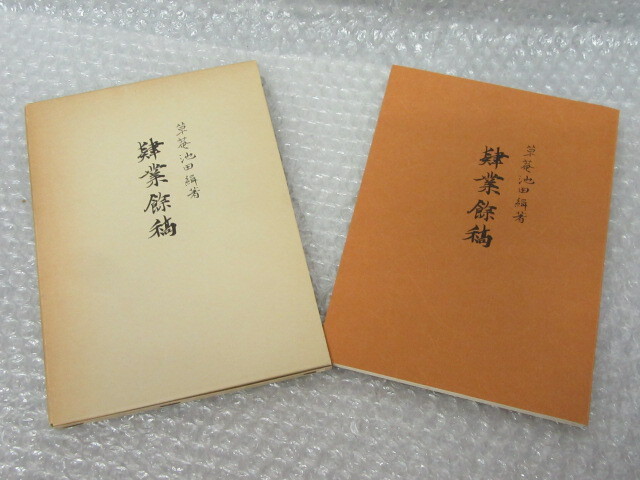 草菴池田緝著
肄業餘稿
草菴池田緝著
肄業餘稿